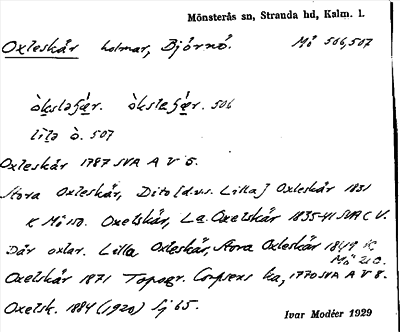 Mönsterås sn, Stranda hd, Kalm. l.
Oxleskär holmar, Björnö. Mö 506,507
òksləʃä́r. òksleʃä́r. 506
lilə ò. 507
Oxleskär 1787 SVA A V 6.
Stora Oxleskär, Dito [d.v.s. Lilla] Oxleskär 1831
K Mö 150. Oxelskär, La. Oxelskär 1835-41 SVA C V.
Där oxlar. Lilla Oxleskär, Stora Oxleskär 1849 K
Mö
Oxelskär 1871 Topogr. Corpsens ka, 1770 SVA A V 8.
Oxelsk. 1884 (1920) Sj 65.
Ivar Modéer 1929